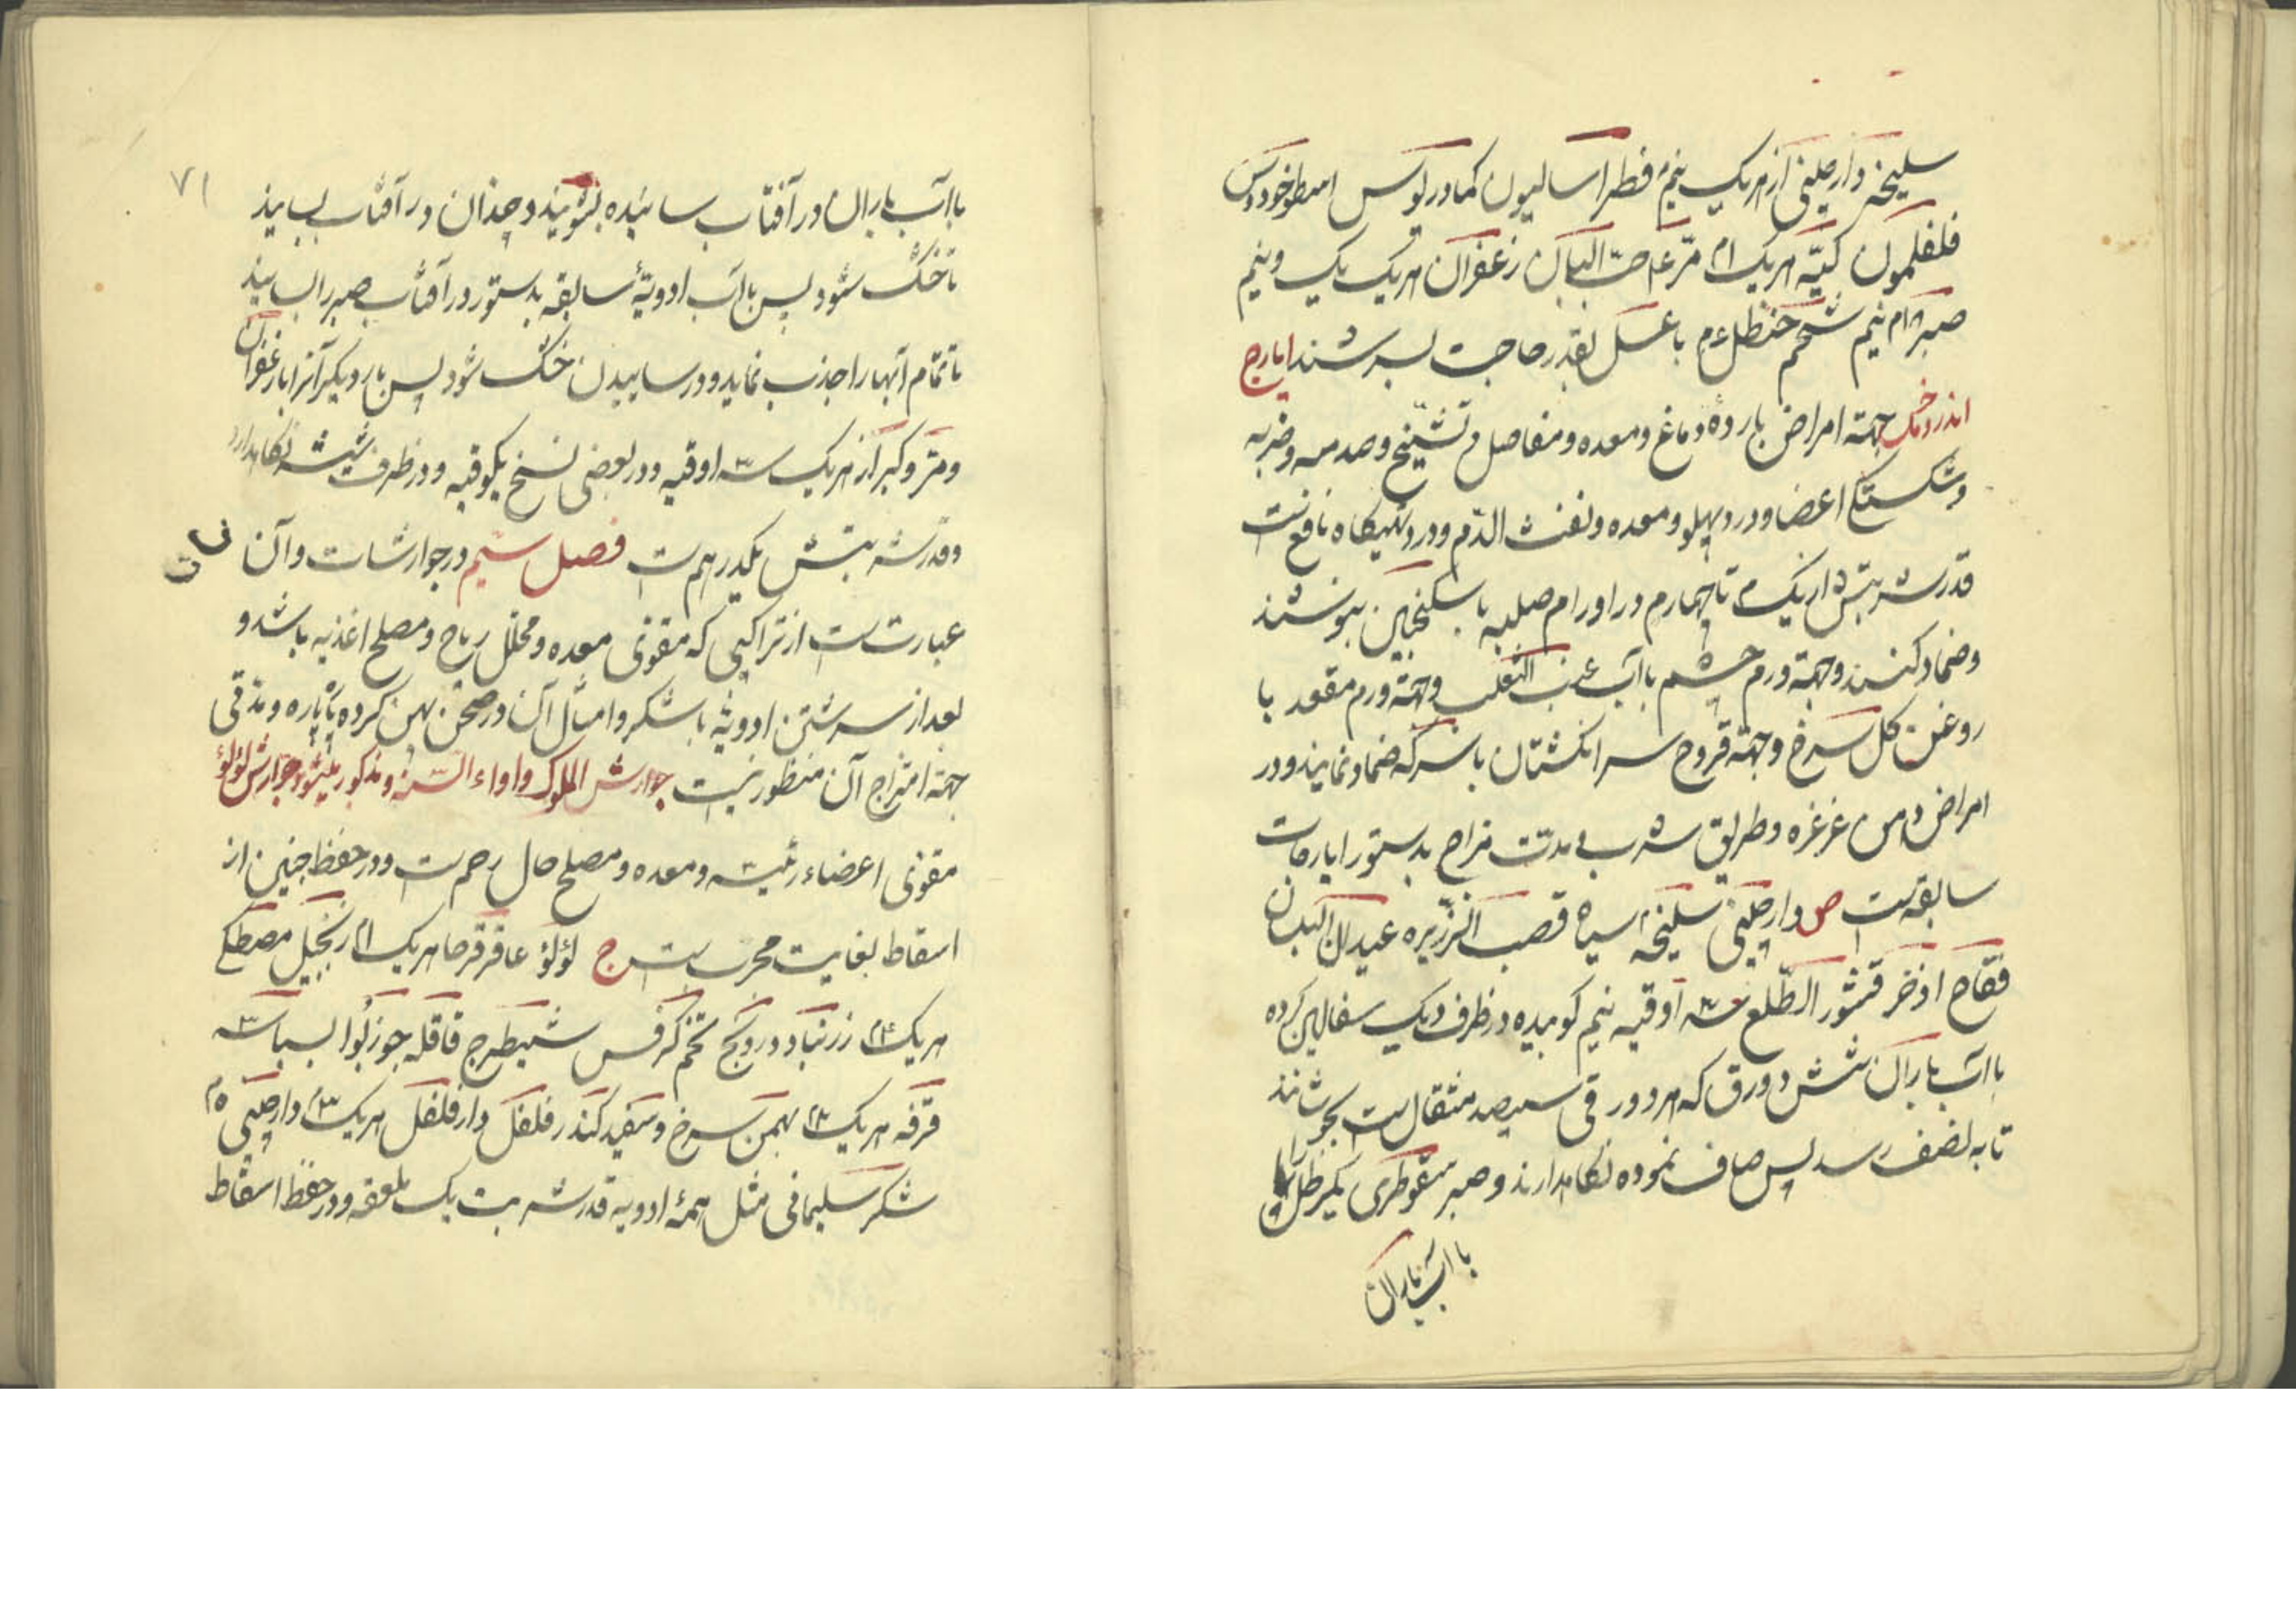 سلیخه دارچینی از هریک نیم فطراسالیون کمادریوس اسطوخودوس
فلفلمون کیه هریک مر حب البان زعفران هریک یک و نیم
صبر نیم شحم حنظل با عسل بقدر حاجت بسرشند ایارج
جهته امراض بارده دماغ و معده و مفاصل و تشنج و صدمه و ضربه
و شکستگی اعضا و درد پهلو و معده و نفث الدم و درد تهیگاه نافعست
قدر شربتش از یک تا چهارم در اورام صلبه با سکنجبین بنوشند
و ضماد کنند و جهته ورم چشم با آب عنب الثعلب و جهته ورم مقعد با
روغن گل سرخ و جهته قروح سر انگشتان با سرکه ضماد نمایند و در
امراض دهن غرغره و طریق شرب و مدت مزاج بدستور ایارجات
سابقه است ص دارچینی سلیخه سیاه قصب الذریره عیدان البلسان
فقاح اذخر قشور الطلع سه اوقیه نیم کوبیده در ظرف دیک سفالین کرده
با آب باران شش دورق که هر دورقی سیصد مثقال است بجوشانند
تا به نصف رسد پس صاف نموده نگاهدارند و صبر سقوطری یکرطل را
با آب باران
۷۱
با آب باران در آفتاب سائیده بشویند و چندان در آفتاب بسایند
تا خشک شود پس با آب ادویهٔ سابقه بدستور در آفتاب صبر را بسایند
تا تمام آبها را جذب نماید و در ساییدن خشک شود پس بار دیگر آنرا با زعفران
و مر و کبر از هریک سه اوقیه و در بعضی نسخ یکوقیه و در ظرف شیشه نگاهدارد
و قدر شربتش یکدرهم است فصل سیم در جوارشات و آن
عبارتست از تراکیبی که مقوی معده و محلل ریاح و مصلح اغذیه باشد و
بعد از سرشتن ادویه با شکر و امثال آن در صحن پهن کرده پاره پاره و تدقی
جهته امتزاج آن منظور نیست جوارش الملوک و مذکور میشود جوارش لؤلؤ
مقوی اعضاء رئیسه و معده و مصلح حال رحم است و در حفظ جنین از
اسقاط بغایت مجرب است ج لؤلؤ عاقرقرحا هریک زنجبیل مصطکی
هریک زرنباد درونج تخم کرفس شیطرج قاقله جوزبوا بسباسه
قرفه هریک بهمن سرخ و سفید کندر فلفل دارفلفل هریک دارچینی
شکر سلیمانی مثل همهٔ ادویه قدر شربت یک ملعقه و در حفظ اسقاط